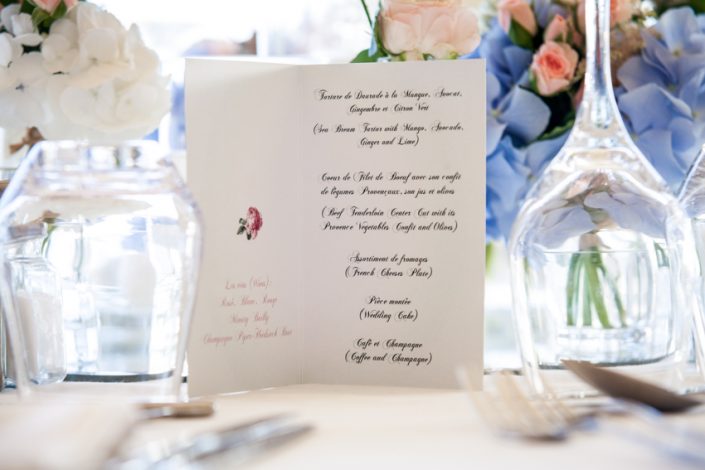 Les vins (Wins):
Rosé, Blanc, Rouge
Champagne Piper-Heidsieck Brut
Tartare de Daurade à la Mangue, Avocat,
Gingembre et Citron Vert
(Sea Bream Tartar with Mango, Avocado,
Ginger and Lime)
Coeur de Filet de Boeuf avec son confit
de légumes Provençaux, son jus et olives
(Beef Tenderloin Center Cut with its
Provence Vegetables Confit and Olives)
Assortiment de fromages
(French Cheeses Plate)
Pièce montée
(Wedding Cake)
Café et Champagne
(Coffee and Champagne)